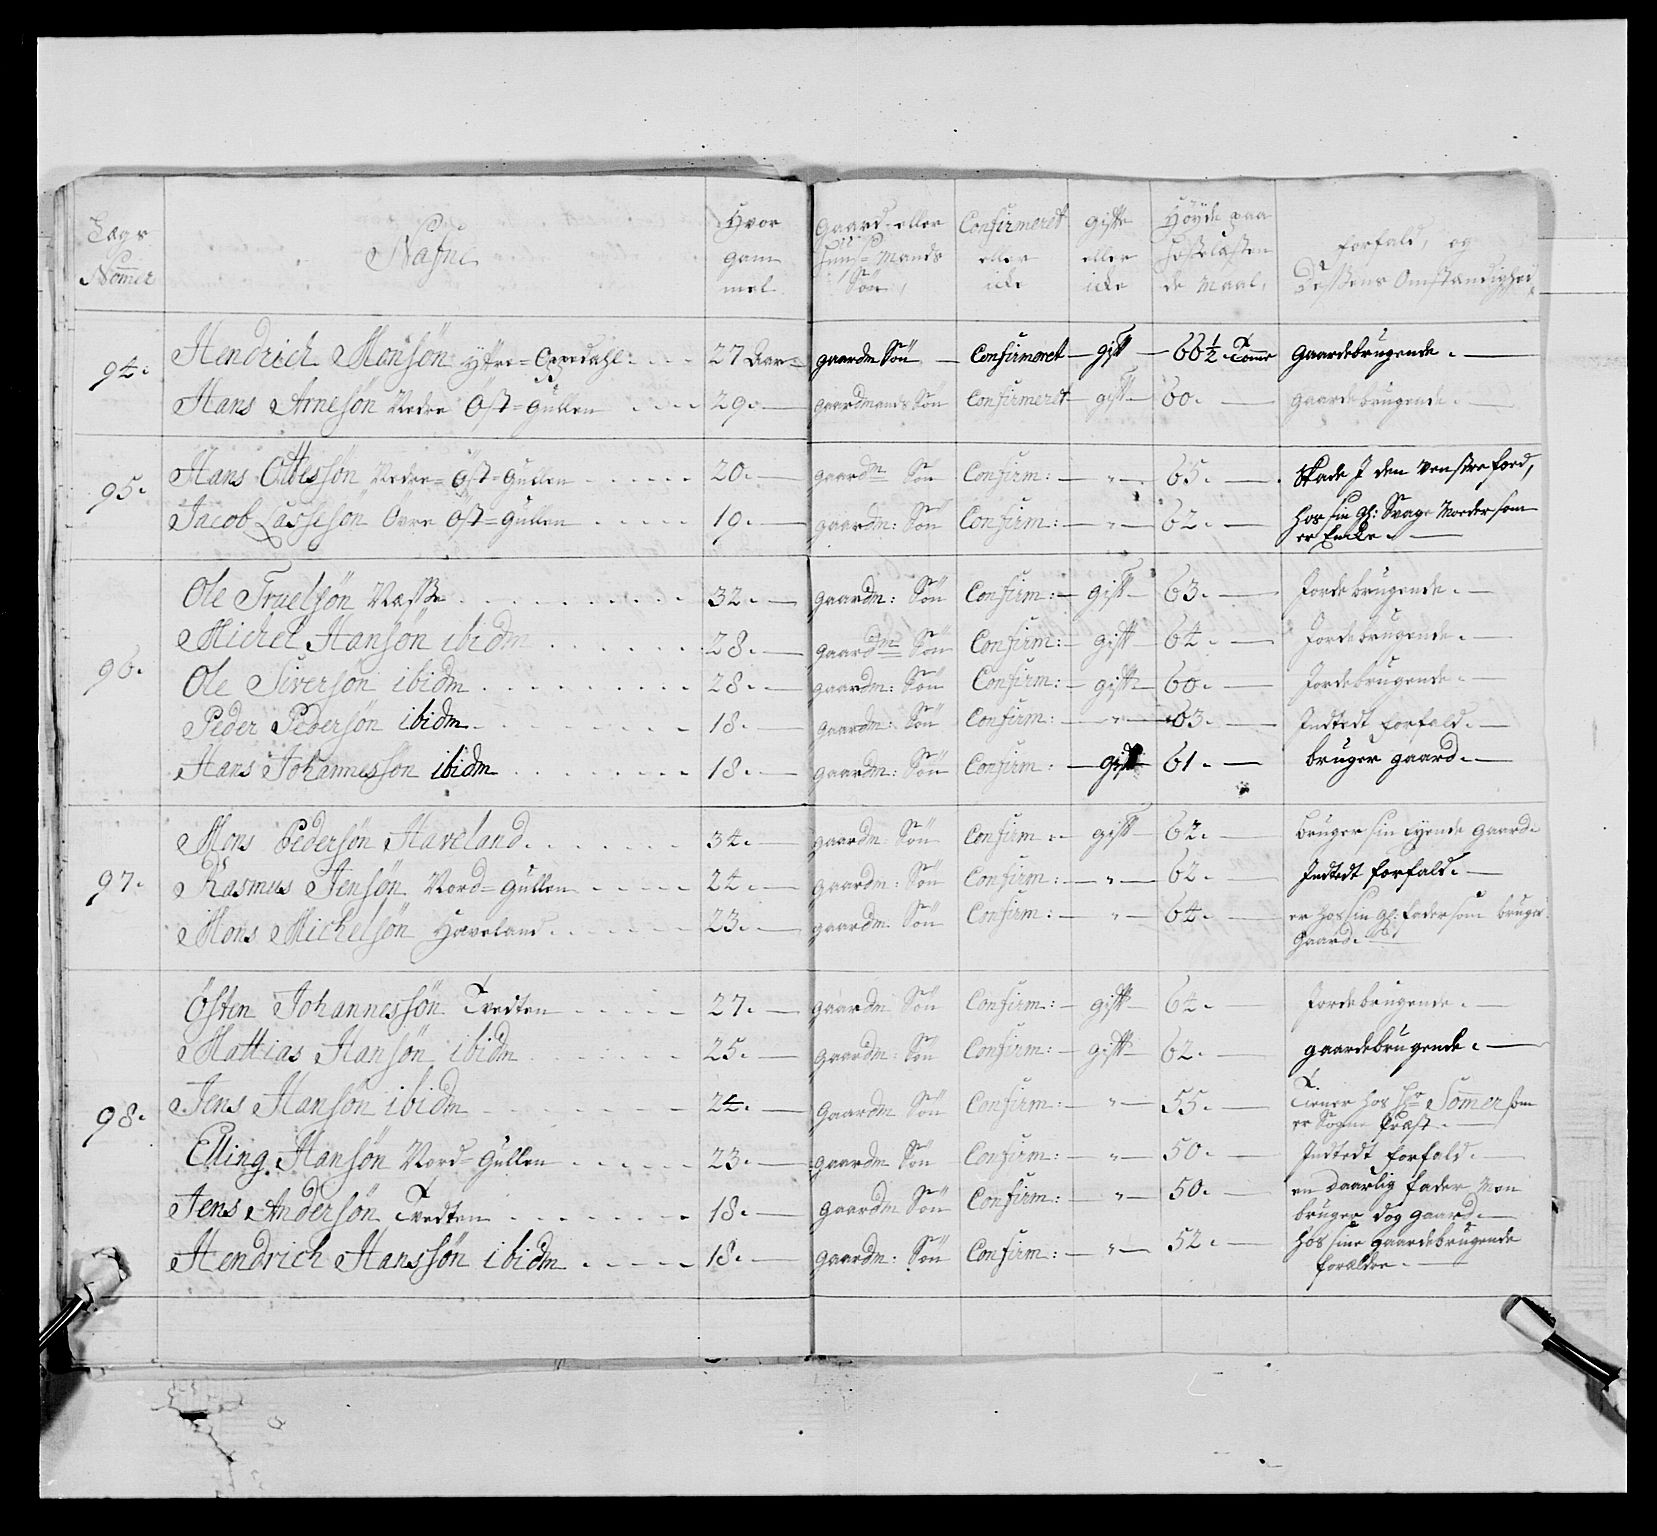 Lægs Nommer | Nafne | Hvor gam mel | Gaard eller Huus Mands Søn | Confirmeret eller icke | gifte eller icke | Høyde paa Hosølæsten de Maal, | forfald, og Deßens Omstændighed
94. Hendrich Monsøn Ytre-Oppedahl | 27 Aar | gaardm Søn | Confirmeret | gift | 66½ Tomme | Gaardebrugende.
Hans Arnesøn Nedre Øst-Gullen | 29. | gaardmands Søn | Confirmeret | gift | 60. | gaardebrugende.
95. Hans Ottessøn Nedre-Øst-Gullen | 20. | gaardm Søn | Confirm: | " | 65. | Skade J den Venstre foed,
Jacob Lassesøn Øvre Øst-Gullen | 19. | gaardm: Søn | Confirm: | " | 62. | hos sin gl: Svage Moder som
er Encke.
96. Ole Truelsøn | 32. | gaardm: Søn | Confirm: | gift | 63. | Jordebrugende.
Michel Hansøn ibidm | 28. | gaardm Søn | Confirm: | gift | 64. | Jordebrugende.
Ole Siversøn ibidm | 28. | gaardm: Søn | Confirm: | gift | 60. | Jordebrugende.
Peder Pedersøn ibidm | 18. | gaardm: Søn | Confirm: | " | 63. | Indtedt forfald.
Hans Johannessøn ibidm | 18. | gaardm: Søn | Confirm: | gift | 61. | bruger gaard.
97. Mons Pedersøn Haveland | 34. | gaardm: Søn | Confirm: | gift | 62. | bruger sin eyende gaard.
Rasmus Jensøn Nord-Gullen | 24. | gaardm: Søn | Confirm: | " | 62. | Indtedt forfald.
Mons Michelsøn Haveland | 23. | gaardm. Søn | Confirm: | " | 64. | er hos sin gl: fader som bruger
Gaard.
98. Østen Johannessøn Tvedten | 27. | gaardm Søn | Confirm: | gift | 64. | Jordebrugende.
Mattias Hansøn ibidm | 25. | gaardm: Søn | Confirm: | gift | 62. | gaardebrugende.
Jens Hansøn ibidm | 24. | Gaardm Søn | Confirm: | " | 55. | Tiener hos Hr Sømer som
er Sogne Præst.
Elling Hansøn Nord-Gullen | 23. | gaardm Søn | Confirm: | " | 50. | Indtedt forfald.
Jens Andersøn Tvedten | 18. | gaardm Søn | Confirm: | " | 50. | en Daarlig fader Men
bruger dog gaard.
Hendrich Hanssøn ibidm | 18. | gaardm: Søn | Confirm: | " | 52. | hos sine gaardebrugende
forældre.